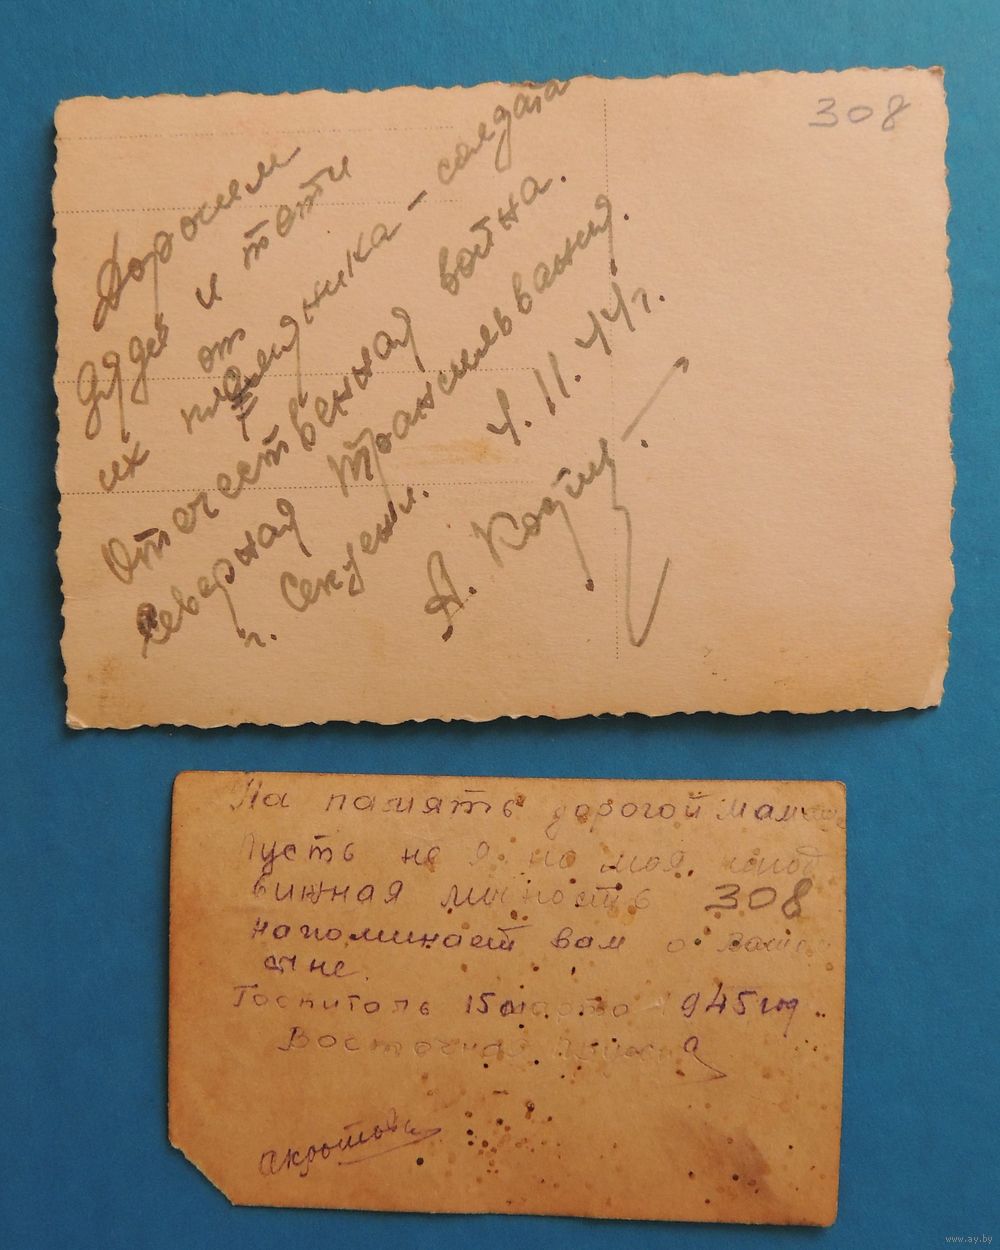 308
Дорогим
дяде и тети
от
их племянника - солдата
Отечественная война.
Северная Трансильвания.
г. Секуени. 4. 11. 44 г.
А.
На память дорогой
Пусть не я но моя непод
вижная личность
308
напоминает вам о вашем
сыне.
Госпиталь 15 марта 1945 год
Восточная Пруссия
www.ay.by